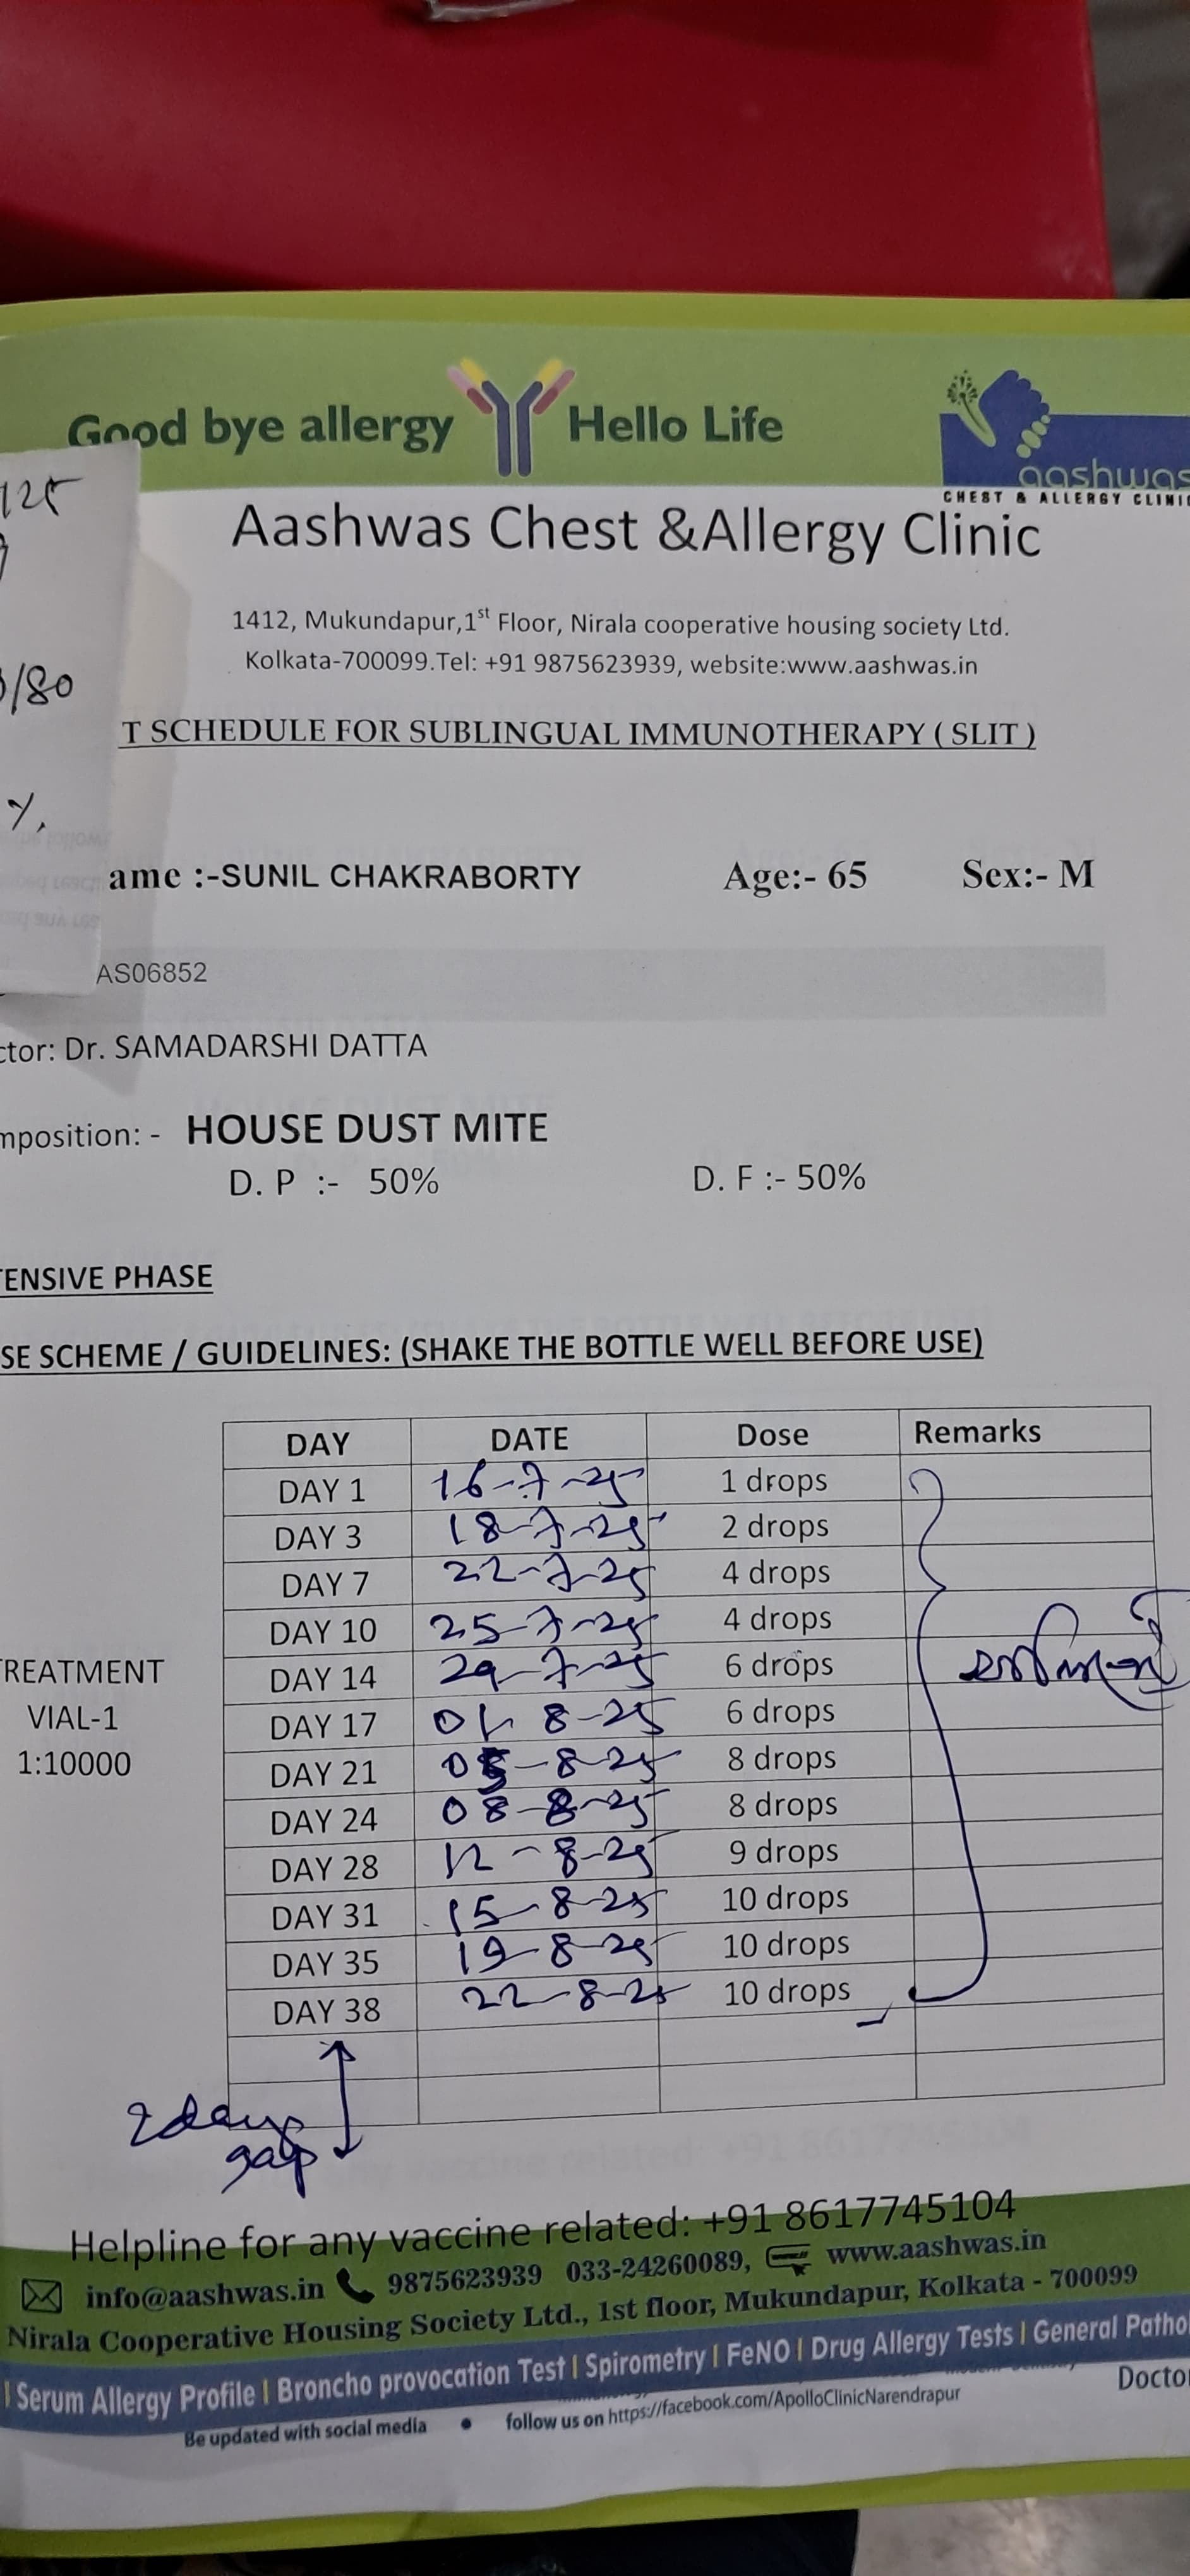 Good bye allergy Hello Life
aashwas
CHEST & ALLERGY CLINIC
Aashwas Chest &Allergy Clinic
1412, Mukundapur,1st Floor, Nirala cooperative housing society Ltd.
Kolkata-700099.Tel: +91 9875623939, website:www.aashwas.in
/80
%.
T SCHEDULE FOR SUBLINGUAL IMMUNOTHERAPY ( SLIT )
ame :-SUNIL CHAKRABORTY Age:- 65 Sex:- M
AS06852
ctor: Dr. SAMADARSHI DATTA
mposition: - HOUSE DUST MITE
D. P :- 50% D. F :- 50%
TENSIVE PHASE
SE SCHEME / GUIDELINES: (SHAKE THE BOTTLE WELL BEFORE USE)
DAY DATE Dose Remarks
DAY 1 16-7-25 1 drops
DAY 3 18-7-25 2 drops
DAY 7 22-7-25 4 drops
DAY 10 25-7-25 4 drops
DAY 14 29-7-25 6 drops
DAY 17 01-8-25 6 drops
DAY 21 05-8-25 8 drops
DAY 24 08-8-25 8 drops
DAY 28 12-8-25 9 drops
DAY 31 15-8-25 10 drops
DAY 35 19-8-25 10 drops
DAY 38 22-8-25 10 drops
REATMENT
VIAL-1
1:10000
2days
gap
Helpline for any vaccine related: +91 8617745104
info@aashwas.in 9875623939 033-24260089, www.aashwas.in
Nirala Cooperative Housing Society Ltd., 1st floor, Mukundapur, Kolkata - 700099
| Serum Allergy Profile | Broncho provocation Test | Spirometry | FeNO | Drug Allergy Tests | General Patho
Docto
Be updated with social media • follow us on https://facebook.com/ApolloClinicNarendrapur